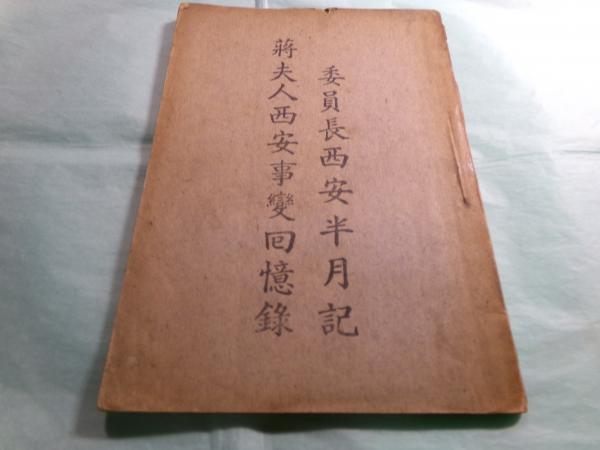 委員長西安半月記
蔣夫人西安事變回憶錄